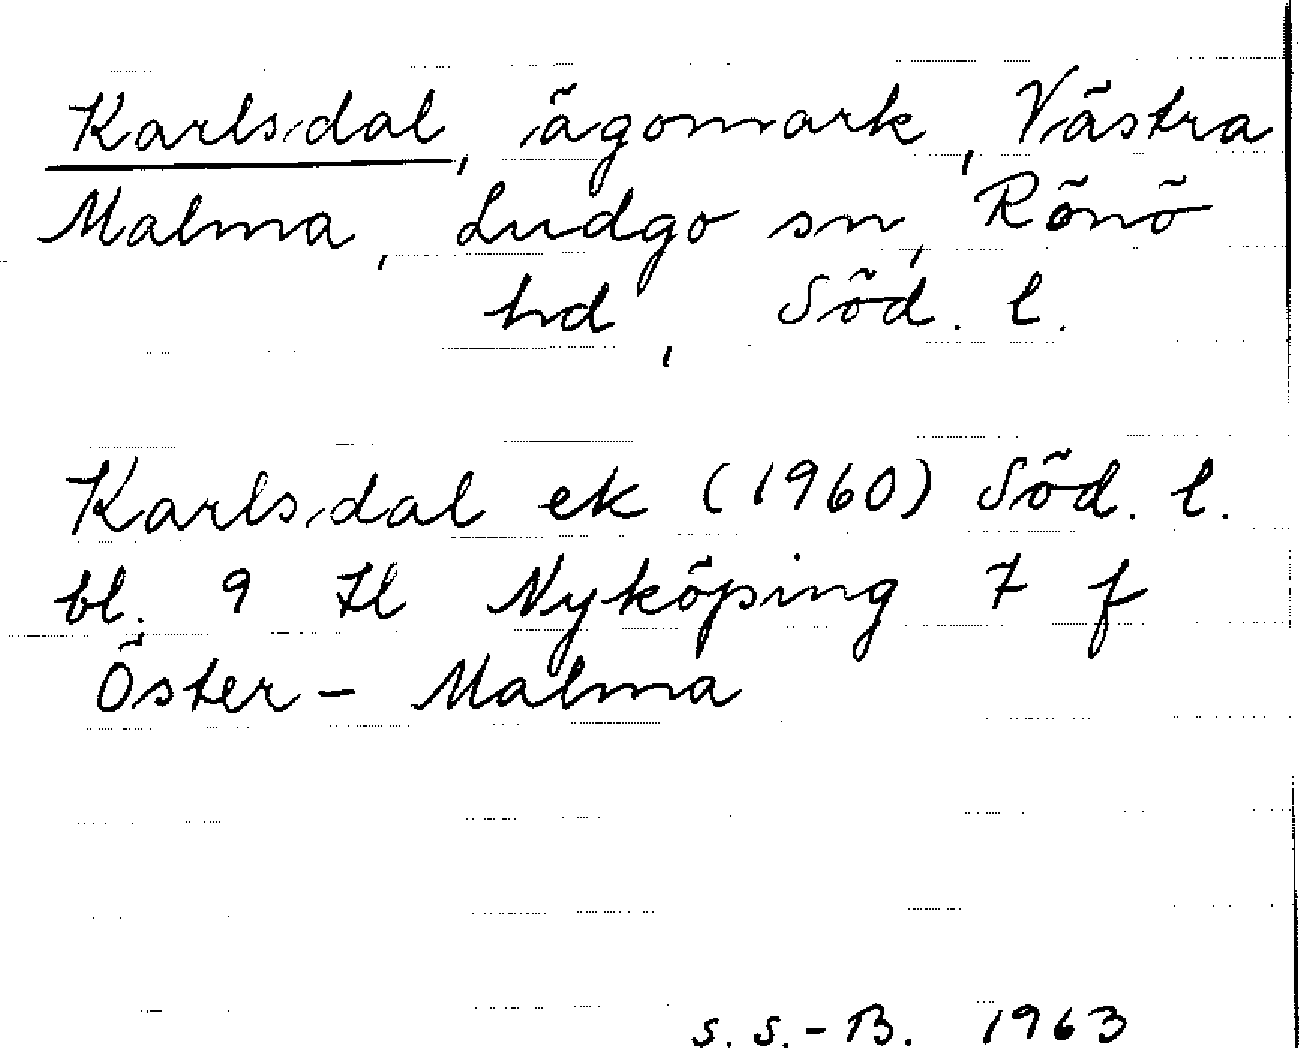 Karlsdal, ägomark, Västra
Malma, Ludgo sn, Rönö
hd, Söd. l.
Karlsdal ek (1960) Söd. l.
bl. 9 Il Nyköping 7 f
Öster-Malma
S. S.-B. 1963